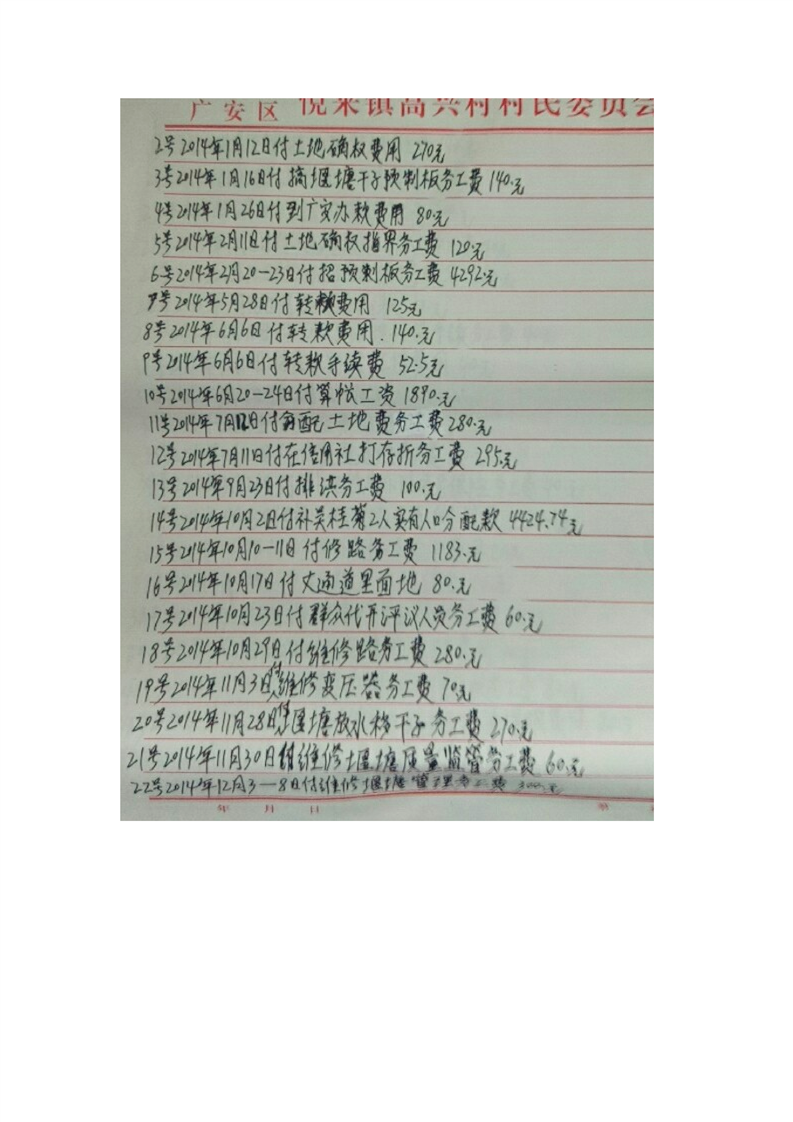 广安区 悦来镇高兴村村民委员会
2号2014年1月12日付土地确权费用 270元
3号2014年1月16日付搞堰塘干子预制板务工费140.元
4号2014年1月26日付到广安办款费用 80元
5号2014年2月11日付土地确权指界务工费 120元
6号2014年2月20-23日付招预制板务工费4292元
7号2014年5月28日付转款费用 125元
8号2014年6月6日付转款费用.140.元
9号2014年6月6日付转款手续费 52.5元
10号2014年6月20-24日付算帐工资1890.元
11号2014年7月 日付 配土地费务工费280.元
12号2014年7月11日付在信用社打存折务工费 295.元
13号2014年9月23日付排洪务工费 100.元
14号2014年10月2日付补吴桂菊2人实有人口分配款 4424.74元
15号2014年10月10-11日付修路务工费 1183.元
16号2014年10月17日付丈通道里面地 80.元
17号2014年10月23日付群众代开评议人员务工费60.元
18号2014年10月29日付维修路务工费280.元
19号2014年11月3日付维修变压器务工费70元
20号2014年11月28日付堰塘放水档干子务工费270元
21号2014年11月30日付维修堰塘质量监管务工费 60.元
22号2014年12月3-8日付维修堰塘管理务工费 300.元
年 月 日 第